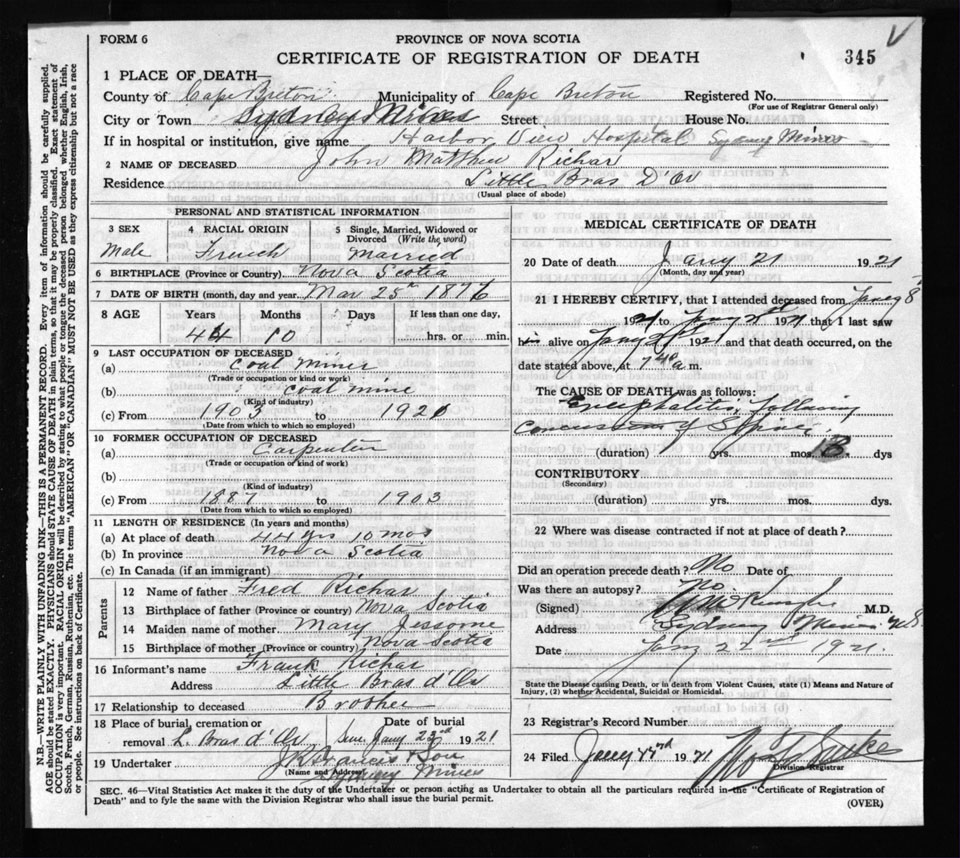 FORM 6
PROVINCE OF NOVA SCOTIA
CERTIFICATE OF REGISTRATION OF DEATH
345
1 PLACE OF DEATH—
County of Cape Breton Municipality of Cape Breton Registered No.
(For use of Registrar General only)
City or Town Sydney Mines Street House No.
If in hospital or institution, give name Harbor View Hospital Sydney Mines
2 NAME OF DECEASED John Matthew Richar
Residence Little Bras D'Or
(Usual place of abode)
PERSONAL AND STATISTICAL INFORMATION
3 SEX 4 RACIAL ORIGIN 5 Single, Married, Widowed or Divorced (Write the word)
Male French Married
6 BIRTHPLACE (Province or Country) Nova Scotia
7 DATE OF BIRTH (month, day and year) Mar 25th 1876
8 AGE Years Months Days If less than one day,
44 10 hrs. or min.
9 LAST OCCUPATION OF DECEASED
(a) Coal Miner
(Trade or occupation or kind or work)
(b) Coal mine
(Kind of industry)
(c) From 1903 to 1920
(Date from which to which so employed)
10 FORMER OCCUPATION OF DECEASED
(a) Carpenter
(Trade or occupation or kind of work)
(b)
(Kind of industry)
(c) From 1887 to 1903
(Date from which to which so employed)
11 LENGTH OF RESIDENCE (In years and months)
(a) At place of death 44 yrs 10 mos
(b) In province Nova Scotia
(c) In Canada (if an immigrant)
Parents
12 Name of father Fred Richar
13 Birthplace of father (Province or country) Nova Scotia
14 Maiden name of mother Mary Jessome
15 Birthplace of mother (Province or country) Nova Scotia
16 Informant's name Frank Richar
Address Little Bras d'Or
17 Relationship to deceased Brother
18 Place of burial, cremation or Date of burial
removal L. Bras d'Or Sun. Jany 23rd 1921
19 Undertaker & Son
(Name and Address) Sydney Mines
MEDICAL CERTIFICATE OF DEATH
20 Date of death Jany 21 1921
(Month, day and year)
21 I HEREBY CERTIFY, that I attended deceased from Jany 8
1921 to Jany 21st 1921 that I last saw
him alive on Jany 21 1921 and that death occurred, on
date stated above, at 7 40 a.m.
The CAUSE OF DEATH was as follows:
Encephalitis following
Concussion of Spine.
(duration) yrs. mos. 13 dys
CONTRIBUTORY
(Secondary)
(duration) yrs. mos. dys.
22 Where was disease contracted if not at place of death?
Did an operation precede death? No Date of
Was there an autopsy? No
(Signed) M.D.
Address Sydney Mines N.S
Date Jany 22nd 1921.
State the Disease causing Death, or in death from Violent Causes, state (1) Means and Nature of
Injury, (2) whether Accidental, Suicidal or Homicidal.
23 Registrar's Record Number
24 Filed Jany 1921
Division Registrar
SEC. 46—Vital Statistics Act makes it the duty of the Undertaker or person acting as Undertaker to obtain all the particulars required in the "Certificate of Registration of
Death" and to fyle the same with the Division Registrar who shall issue the burial permit.
(OVER)
N.B.—WRITE PLAINLY WITH UNFADING INK—THIS IS A PERMANENT RECORD. Every item of information should be carefully supplied.
AGE should be stated EXACTLY. PHYSICIANS should STATE CAUSE OF DEATH in plain terms, so that it may be properly classified. Exact statement of
OCCUPATION is very important. RACIAL ORIGIN will be described by stating to what people or tongue the deceased person belonged, whether English, Irish,
Scotch, French, German, Russian, Ruthenian, etc. The terms "AMERICAN" OR "CANADIAN" MUST NOT BE USED as they express citizenship but not a race
or people. See instructions on back of Certificate.